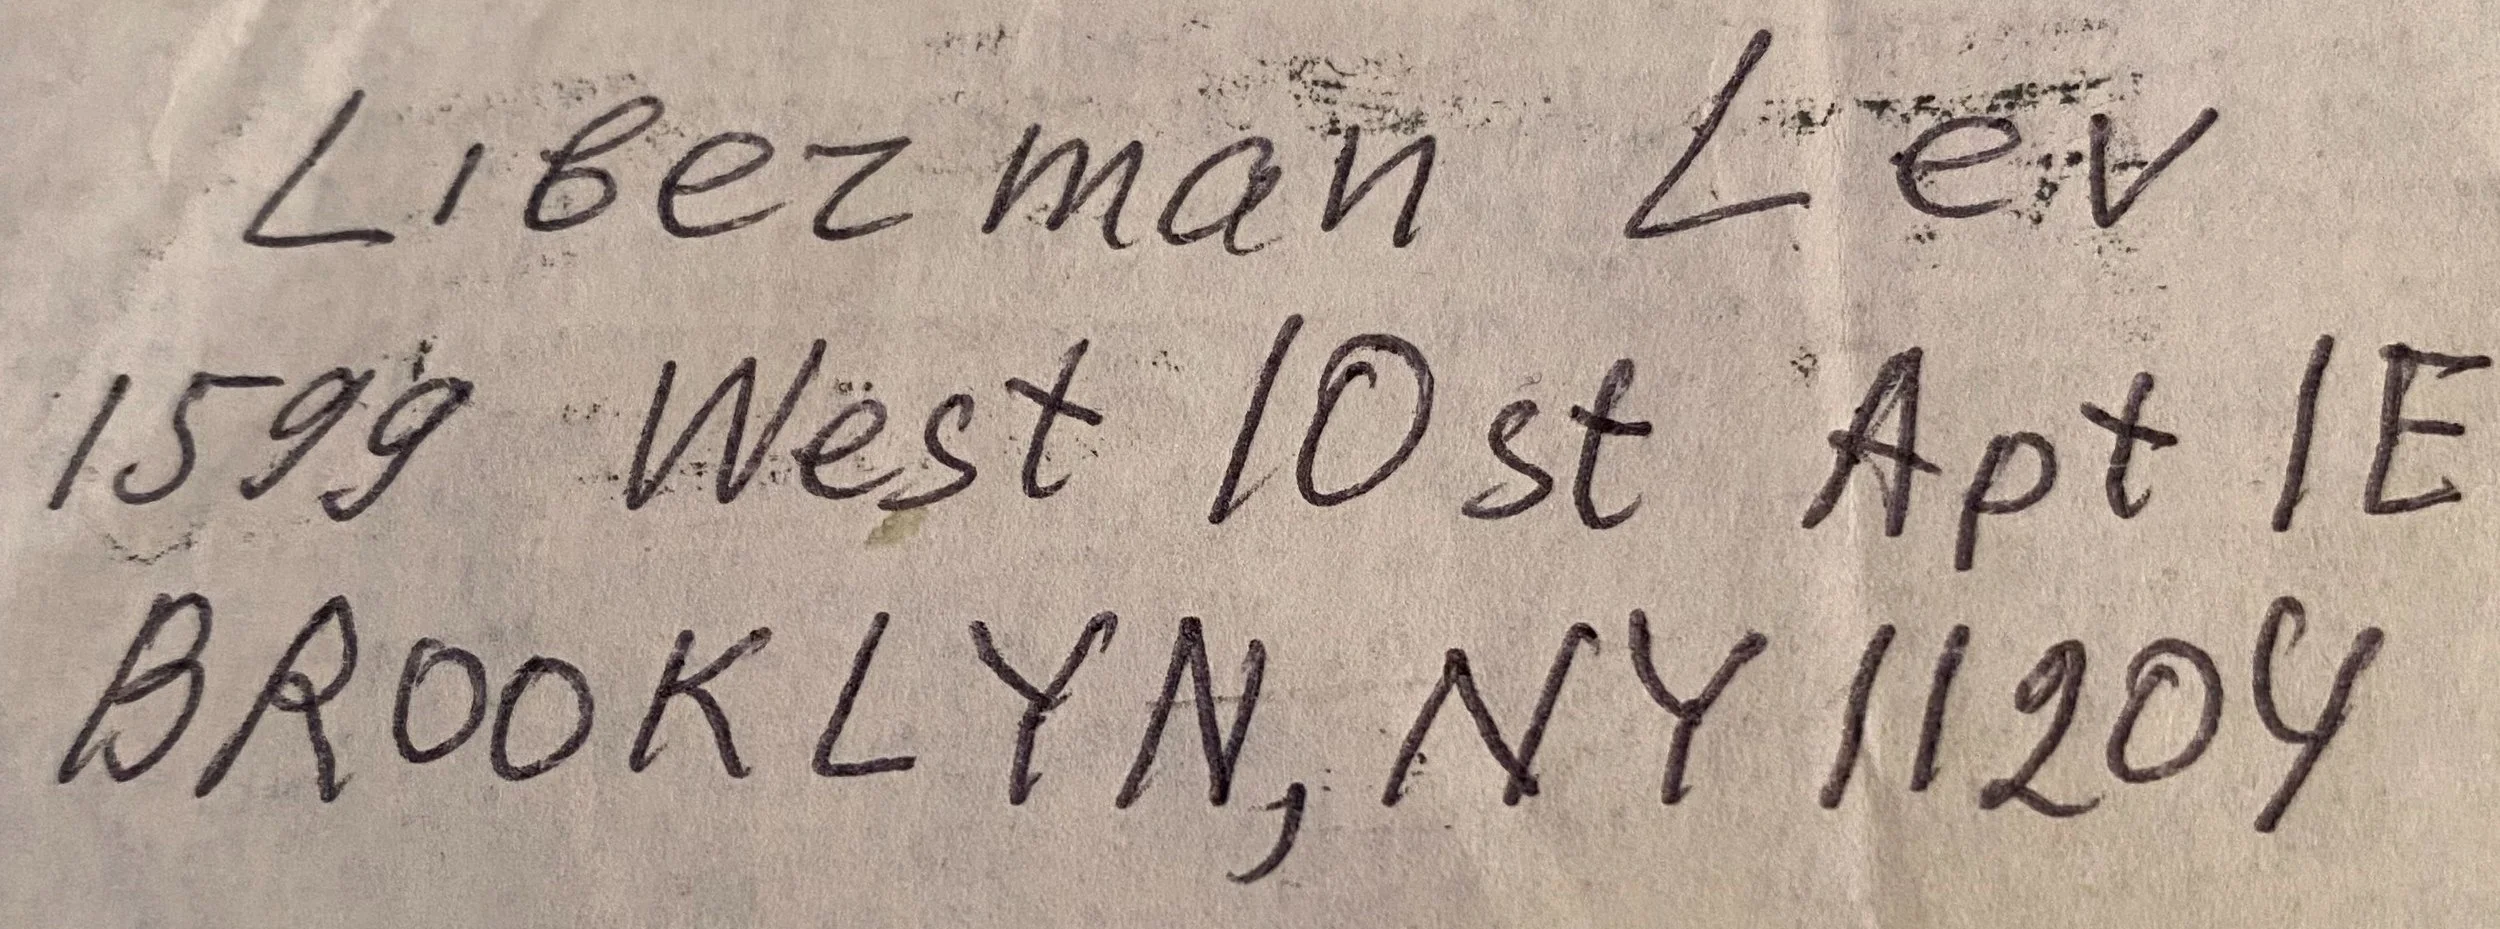 Liberman Lev
1599 West 10 st Apt 1E
BROOKLYN, NY 11204